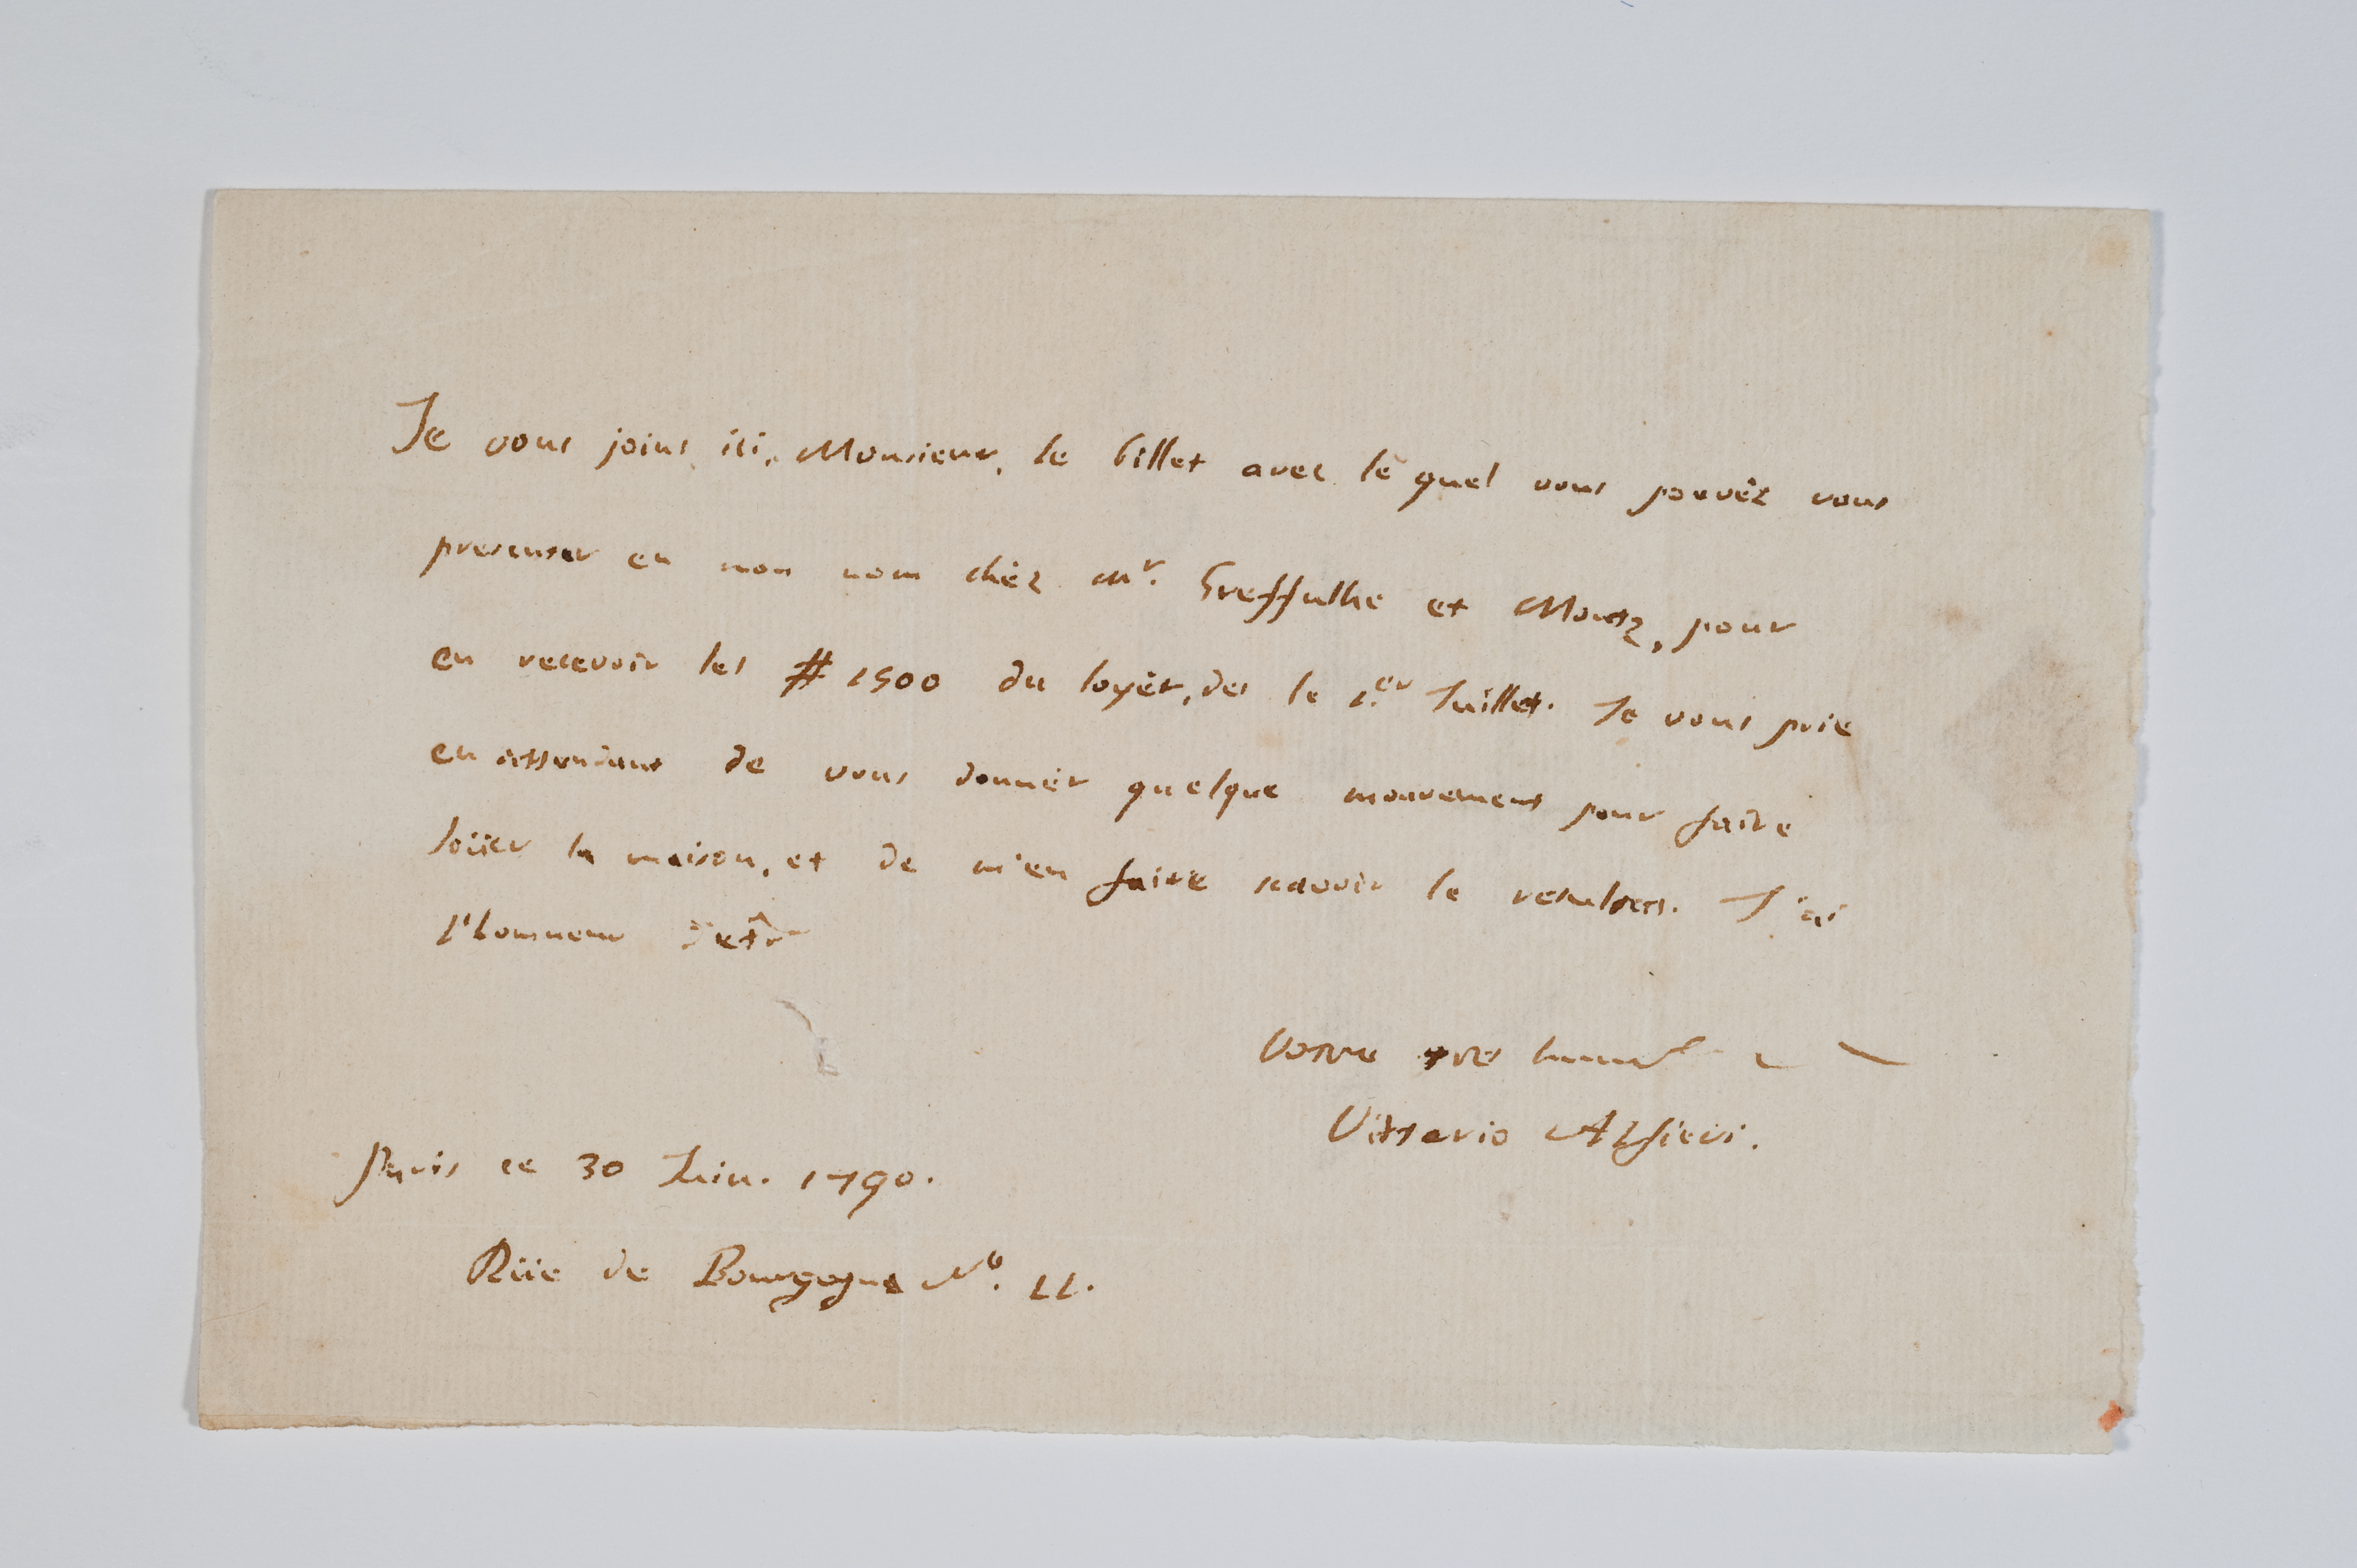 Je vous joins ici, Monsieur, le billet avec le quel vous pouvêz vous
presenter en mon nom chèz Mr. Greffulhe et Montz, pour
en recevoir les # 1500 du loyèr, des le 1.er Juillet. Je vous prie
en attendant de vous donnèr quelque mouvement pour faire
loüer la maison, et de m'en faire scavoir le resultat. J'ai
l'honneur d'etre
Votre tres humb
Vittorio Alfieri.
Paris ce 30 Juin. 1790.
Rüe de Bourgogne No. 11.